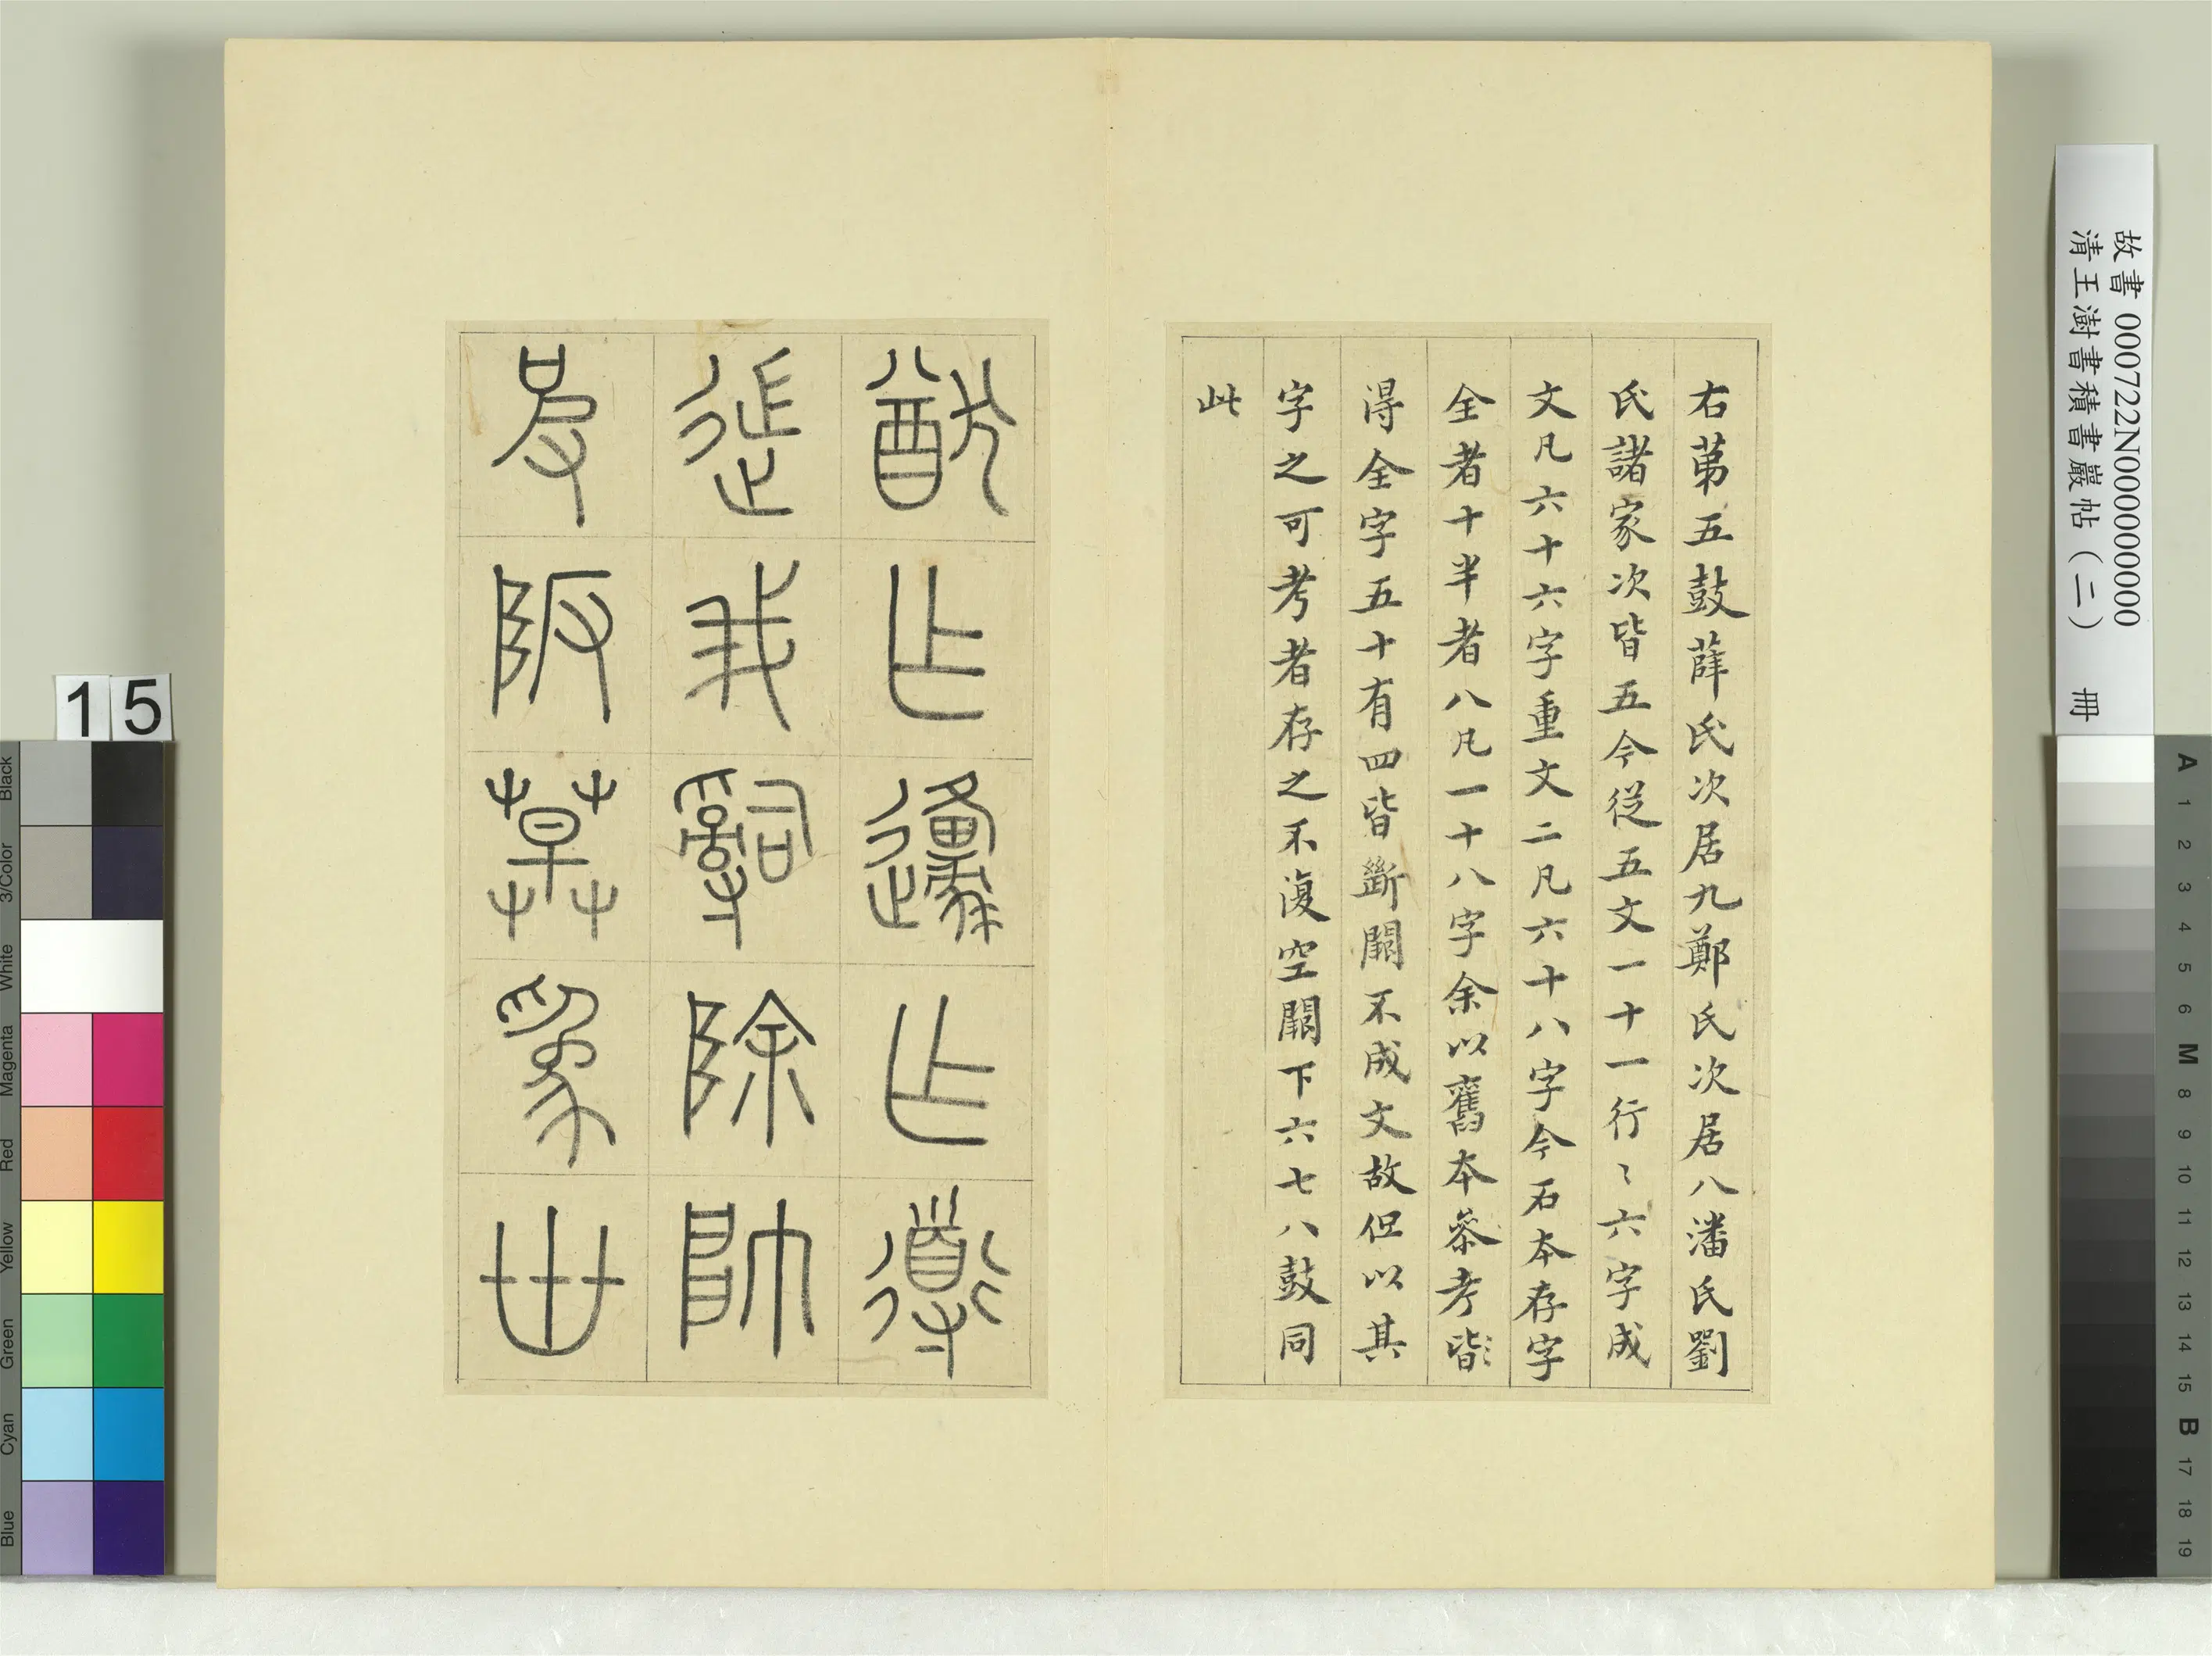 右苐五鼓薛氏次居九鄭氏次居八潘氏劉
氏諸家次皆五今從五文一十一行〻六字成
文凡六十六字重文二凡六十八字今石本存字
全者十半者八凡一十八字余以舊本叅考皆
得全字五十有四皆斷闕不成文故但以其
字之可考者存之不復空闕下六七八鼓同
此
猷乍邍乍導
我辭除帥
阪草為世
故書 000722N000000000
清王澍書積書巖帖(二) 冊
15
Black
3/Color
White
Magenta
Red
Yellow
Green
Cyan
Blue
A 1 2 3 4 5 6 M 8 9 10 11 12 13 14 15 B 17 18 19